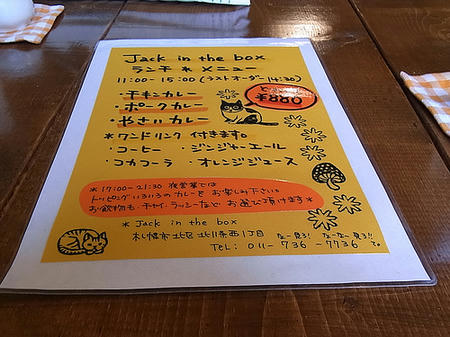 Jack in the box
ランチ メニュー
11:00 - 15:00 (ラストオーダー 14:30)
・チキンカレー
・ポークカレー
・やさいカレー
¥880
＊ワンドリンク 付きます。
・コーヒー ・ジンジャーエール
・コカコーラ ・オレンジジュース
＊17:00-21:30 夜営業では
トッピングいろいろのカレーを お楽しみ下さい。
お飲物も・チャイ・ラッシーなど お選び頂けます＊
＊Jack in the box
札幌市北区北11条西1丁目
TEL: 011-736-7736